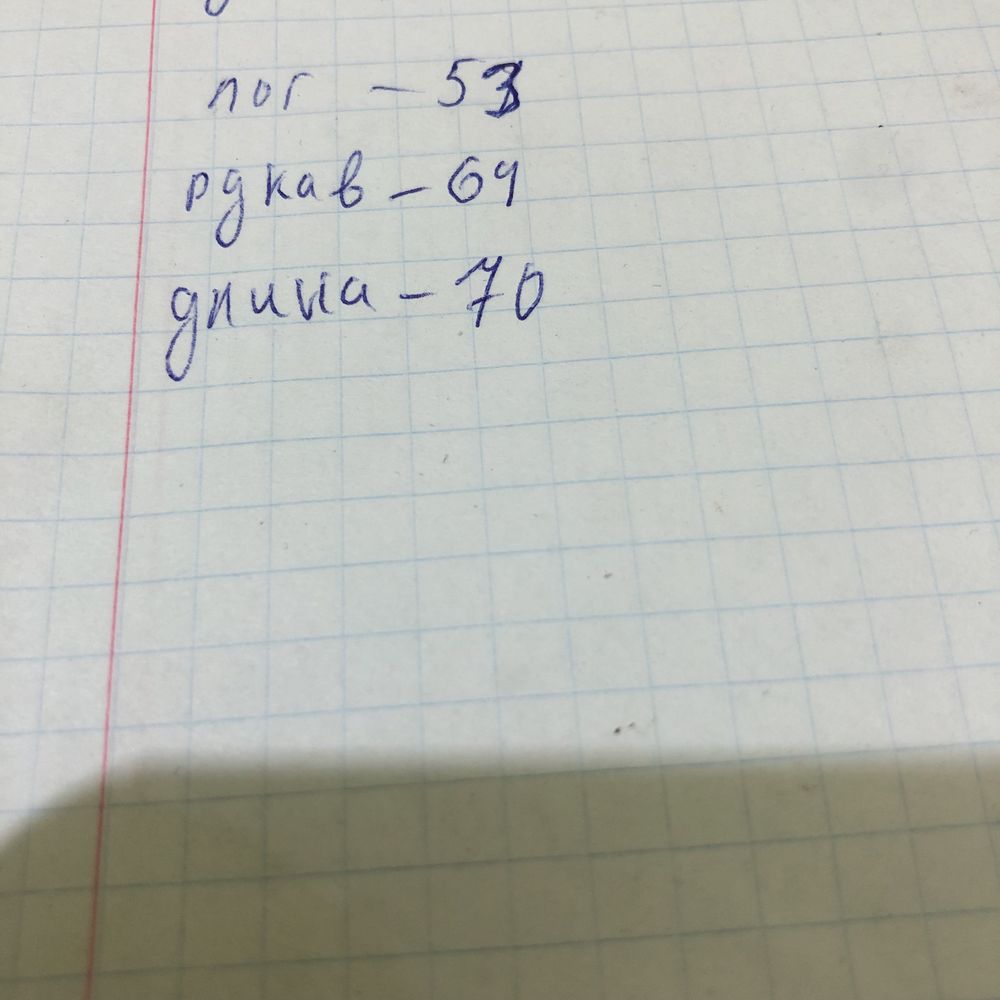 пог – 53
рукав – 64
длина – 70